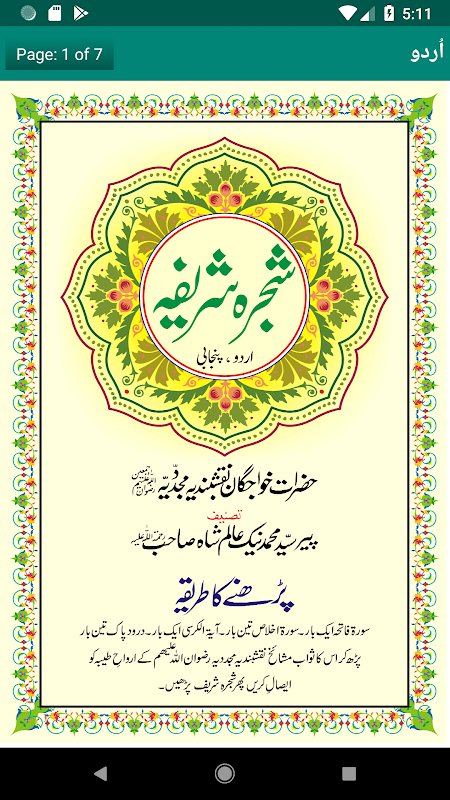 5:11
Page: 1 of 7
اُردو
شجرہ شریفہ
اردو ، پنجابی
حضرات خواجگان نقشبندیہ مجددیہ
تصنیف
پیر سیّد محمد نیک عالم شاہ صاحب رحمۃ اللہ علیہ
پڑھنے کا طریقہ
سورۃ فاتحہ ایک بار۔ سورۃ اخلاص تین بار۔ آیۃ الکرسی ایک بار۔ درود پاک تین بار
پڑھ کر اس کا ثواب مشائخ نقشبندیہ مجددیہ رضوان اللہ علیھم کے ارواح طیبہ کو
ایصال کریں پھر شجرہ شریف پڑھیں۔